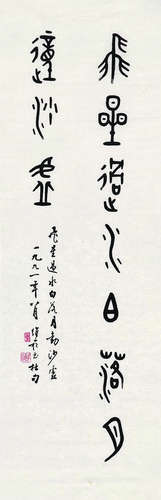 飛星過水白落月
動沙虛
飛星過水白落月動沙虛
一九九一年八月 杜句